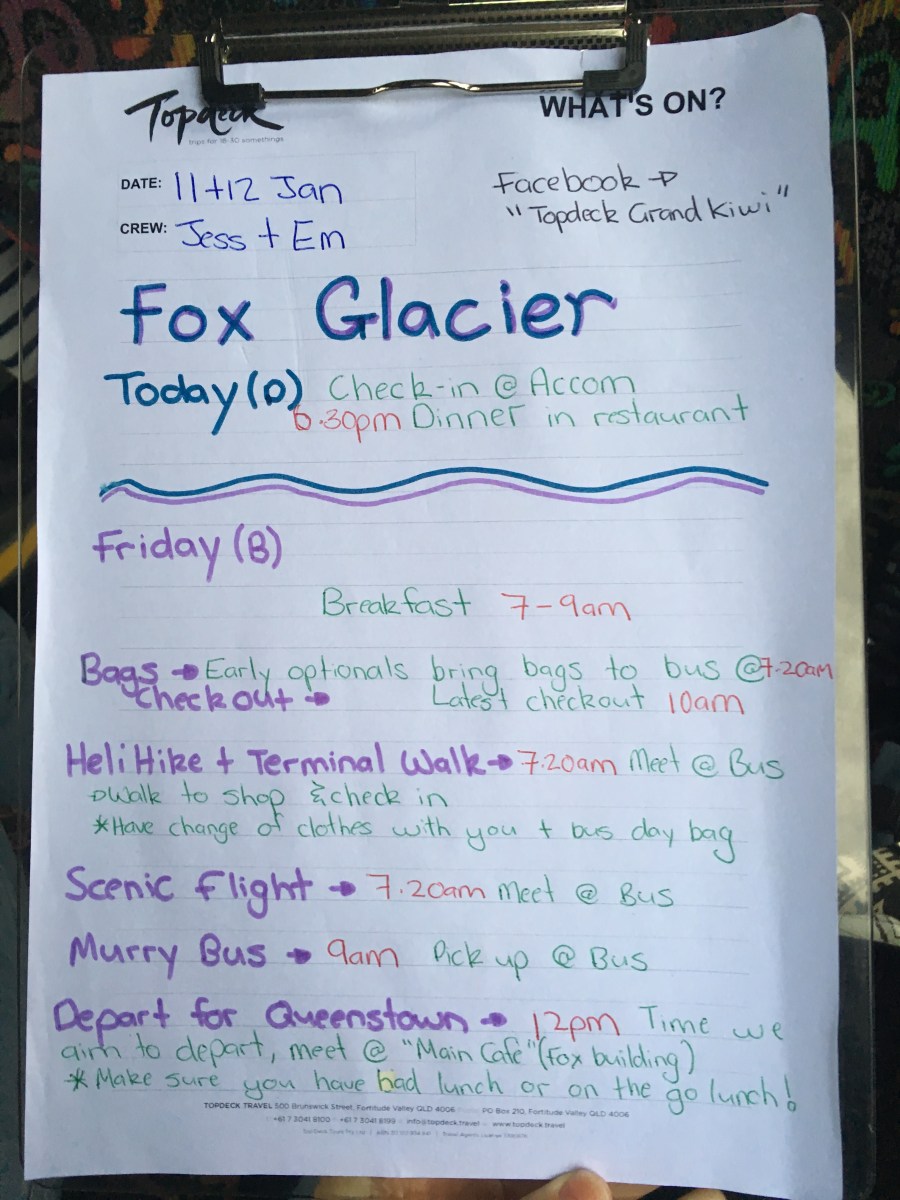 Topdeck
trips for 18-30 somethings
WHAT'S ON?
DATE: 11+12 Jan
CREW: Jess + Em
Facebook →
"Topdeck Grand Kiwi"
Fox Glacier
Today (D) Check-in @ Accom
6.30pm Dinner in restaurant
Friday (B)
Breakfast 7-9am
Bags → Early optionals bring bags to bus @7.20am
Checkout → Latest checkout 10am
Heli Hike + Terminal Walk → 7.20am Meet @ Bus
→Walk to shop & check in
*Have change of clothes with you + bus day bag
Scenic Flight → 7.20am Meet @ Bus
Murry Bus → 9am Pick up @ Bus
Depart for Queenstown → 12pm Time we
aim to depart, meet @ "Main Cafe" (Fox building)
* Make sure you have had lunch or on the go lunch!
TOPDECK TRAVEL 500 Brunswick Street, Fortitude Valley QLD 4006 PO Box 210, Fortitude Valley QLD 4006
+61 7 3041 8100 +61 7 3041 8199 info@topdeck.travel www.topdeck.travel